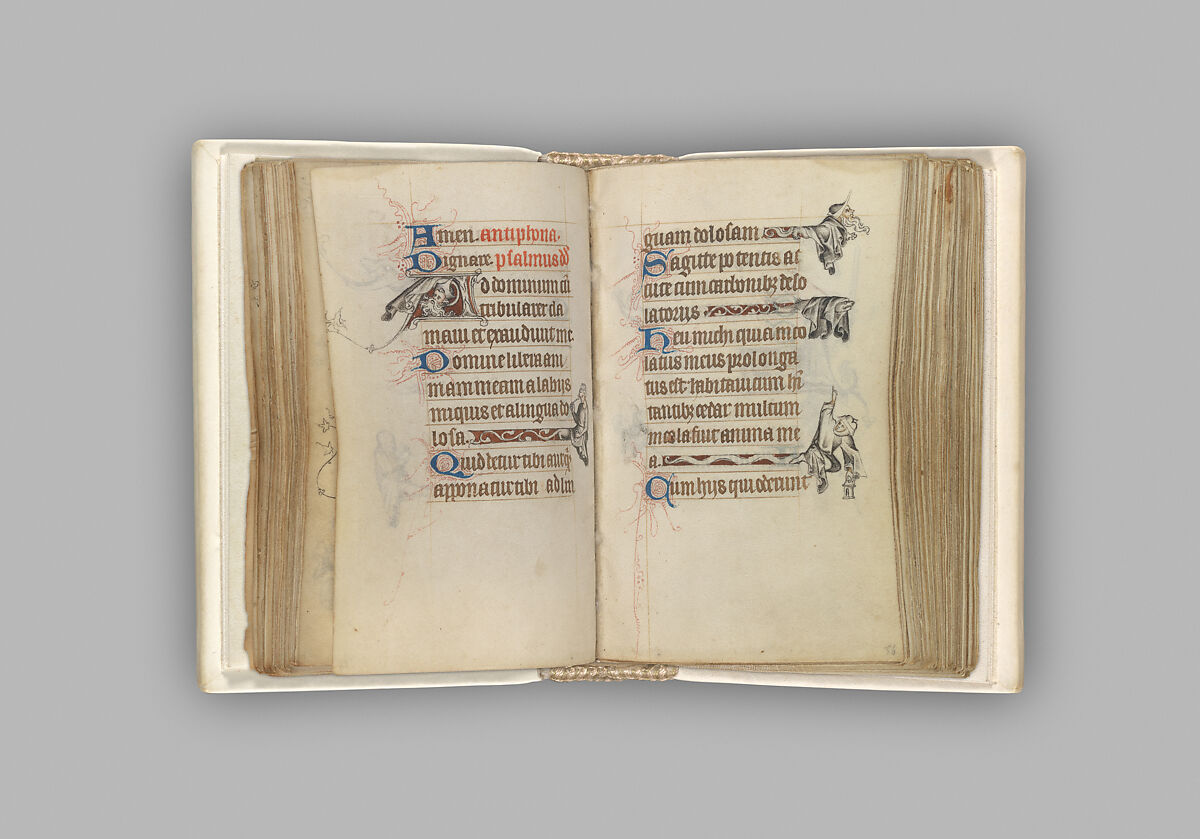 Amen. antiphona.
Dignare psalmus dd
Ad dominum cū
tribularer cla
maui et exaudiuit me
Domine libera ani
mam meam a labijs
iniquis et a lingua do
losa.
Quid detur tibi aut qͥ
apponatur tibi ad lin
guam dolosam
Sagitte potentis ac
cute cum carbonibꝫ deso
latorijs
Heu michi quia inco
latus meus prolonga
tus est habitaui cum hī
tantibꝫ cedar multum
incola fuit anima me
a.
Cum hijs qui oderunt